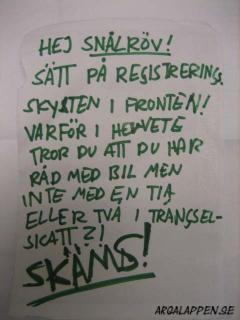 HEJ SNÅLRÖV!
SÄTT PÅ REGISTRERINGS
SKYLTEN I FRONTEN!
VARFÖR I HELVETE
TROR DU ATT DU HAR
RÅD MED BIL MEN
INTE MED EN TIA
ELLER TVÅ I TRÄNGSEL-
SKATT?!
SKÄMS!
ARGALAPPEN.SE